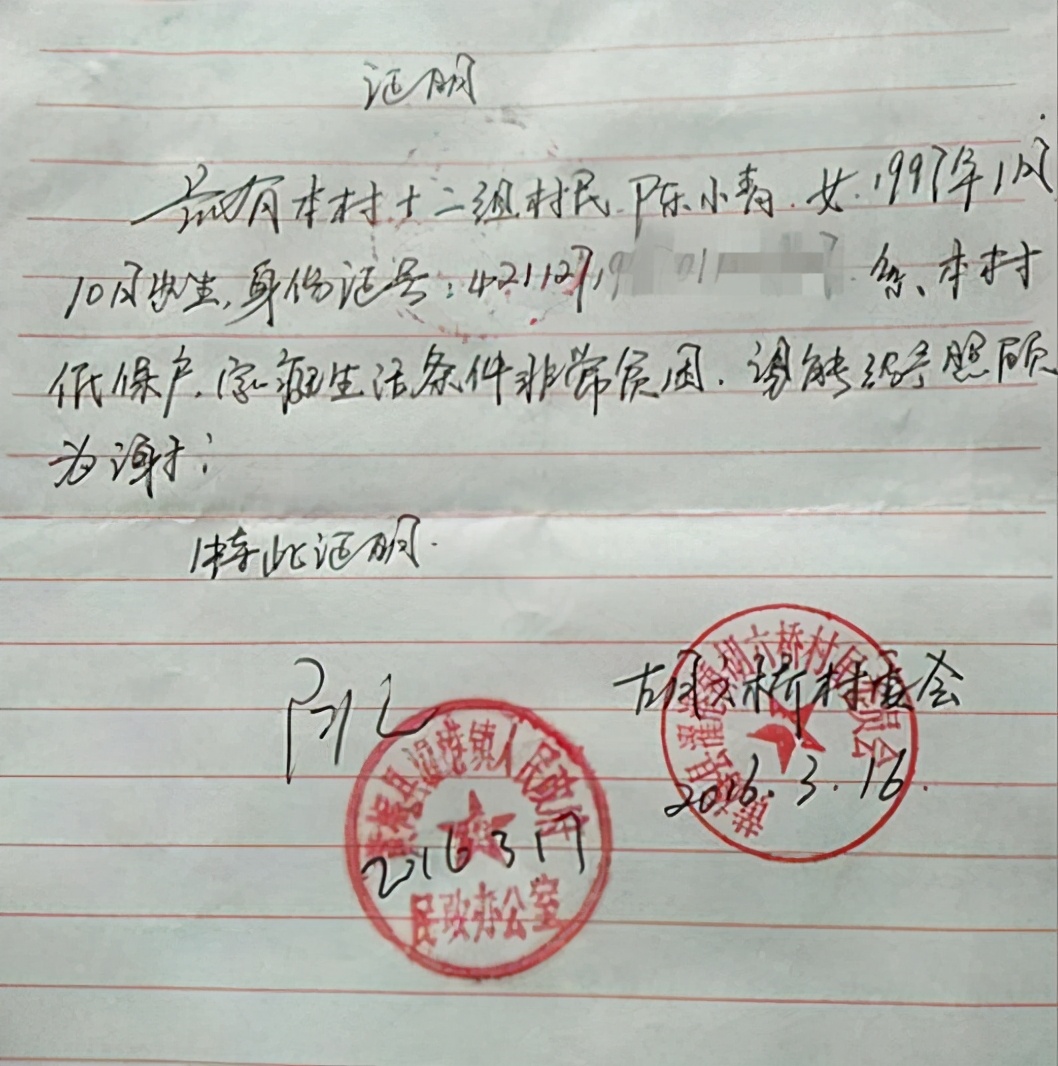 证明
兹有本村十二组村民陈小青.女.1997年1月
10日出生,身份证号:421127,19 01 7.系本村
低保户.家庭生活条件非常贫困.请能给予照顾
为谢;
特此证明.
胡六桥村委会
2016.3.16.
黄梅县濯港镇胡六桥村居民委员会
黄梅县濯港镇人民政府
2016 3 17
民政办公室